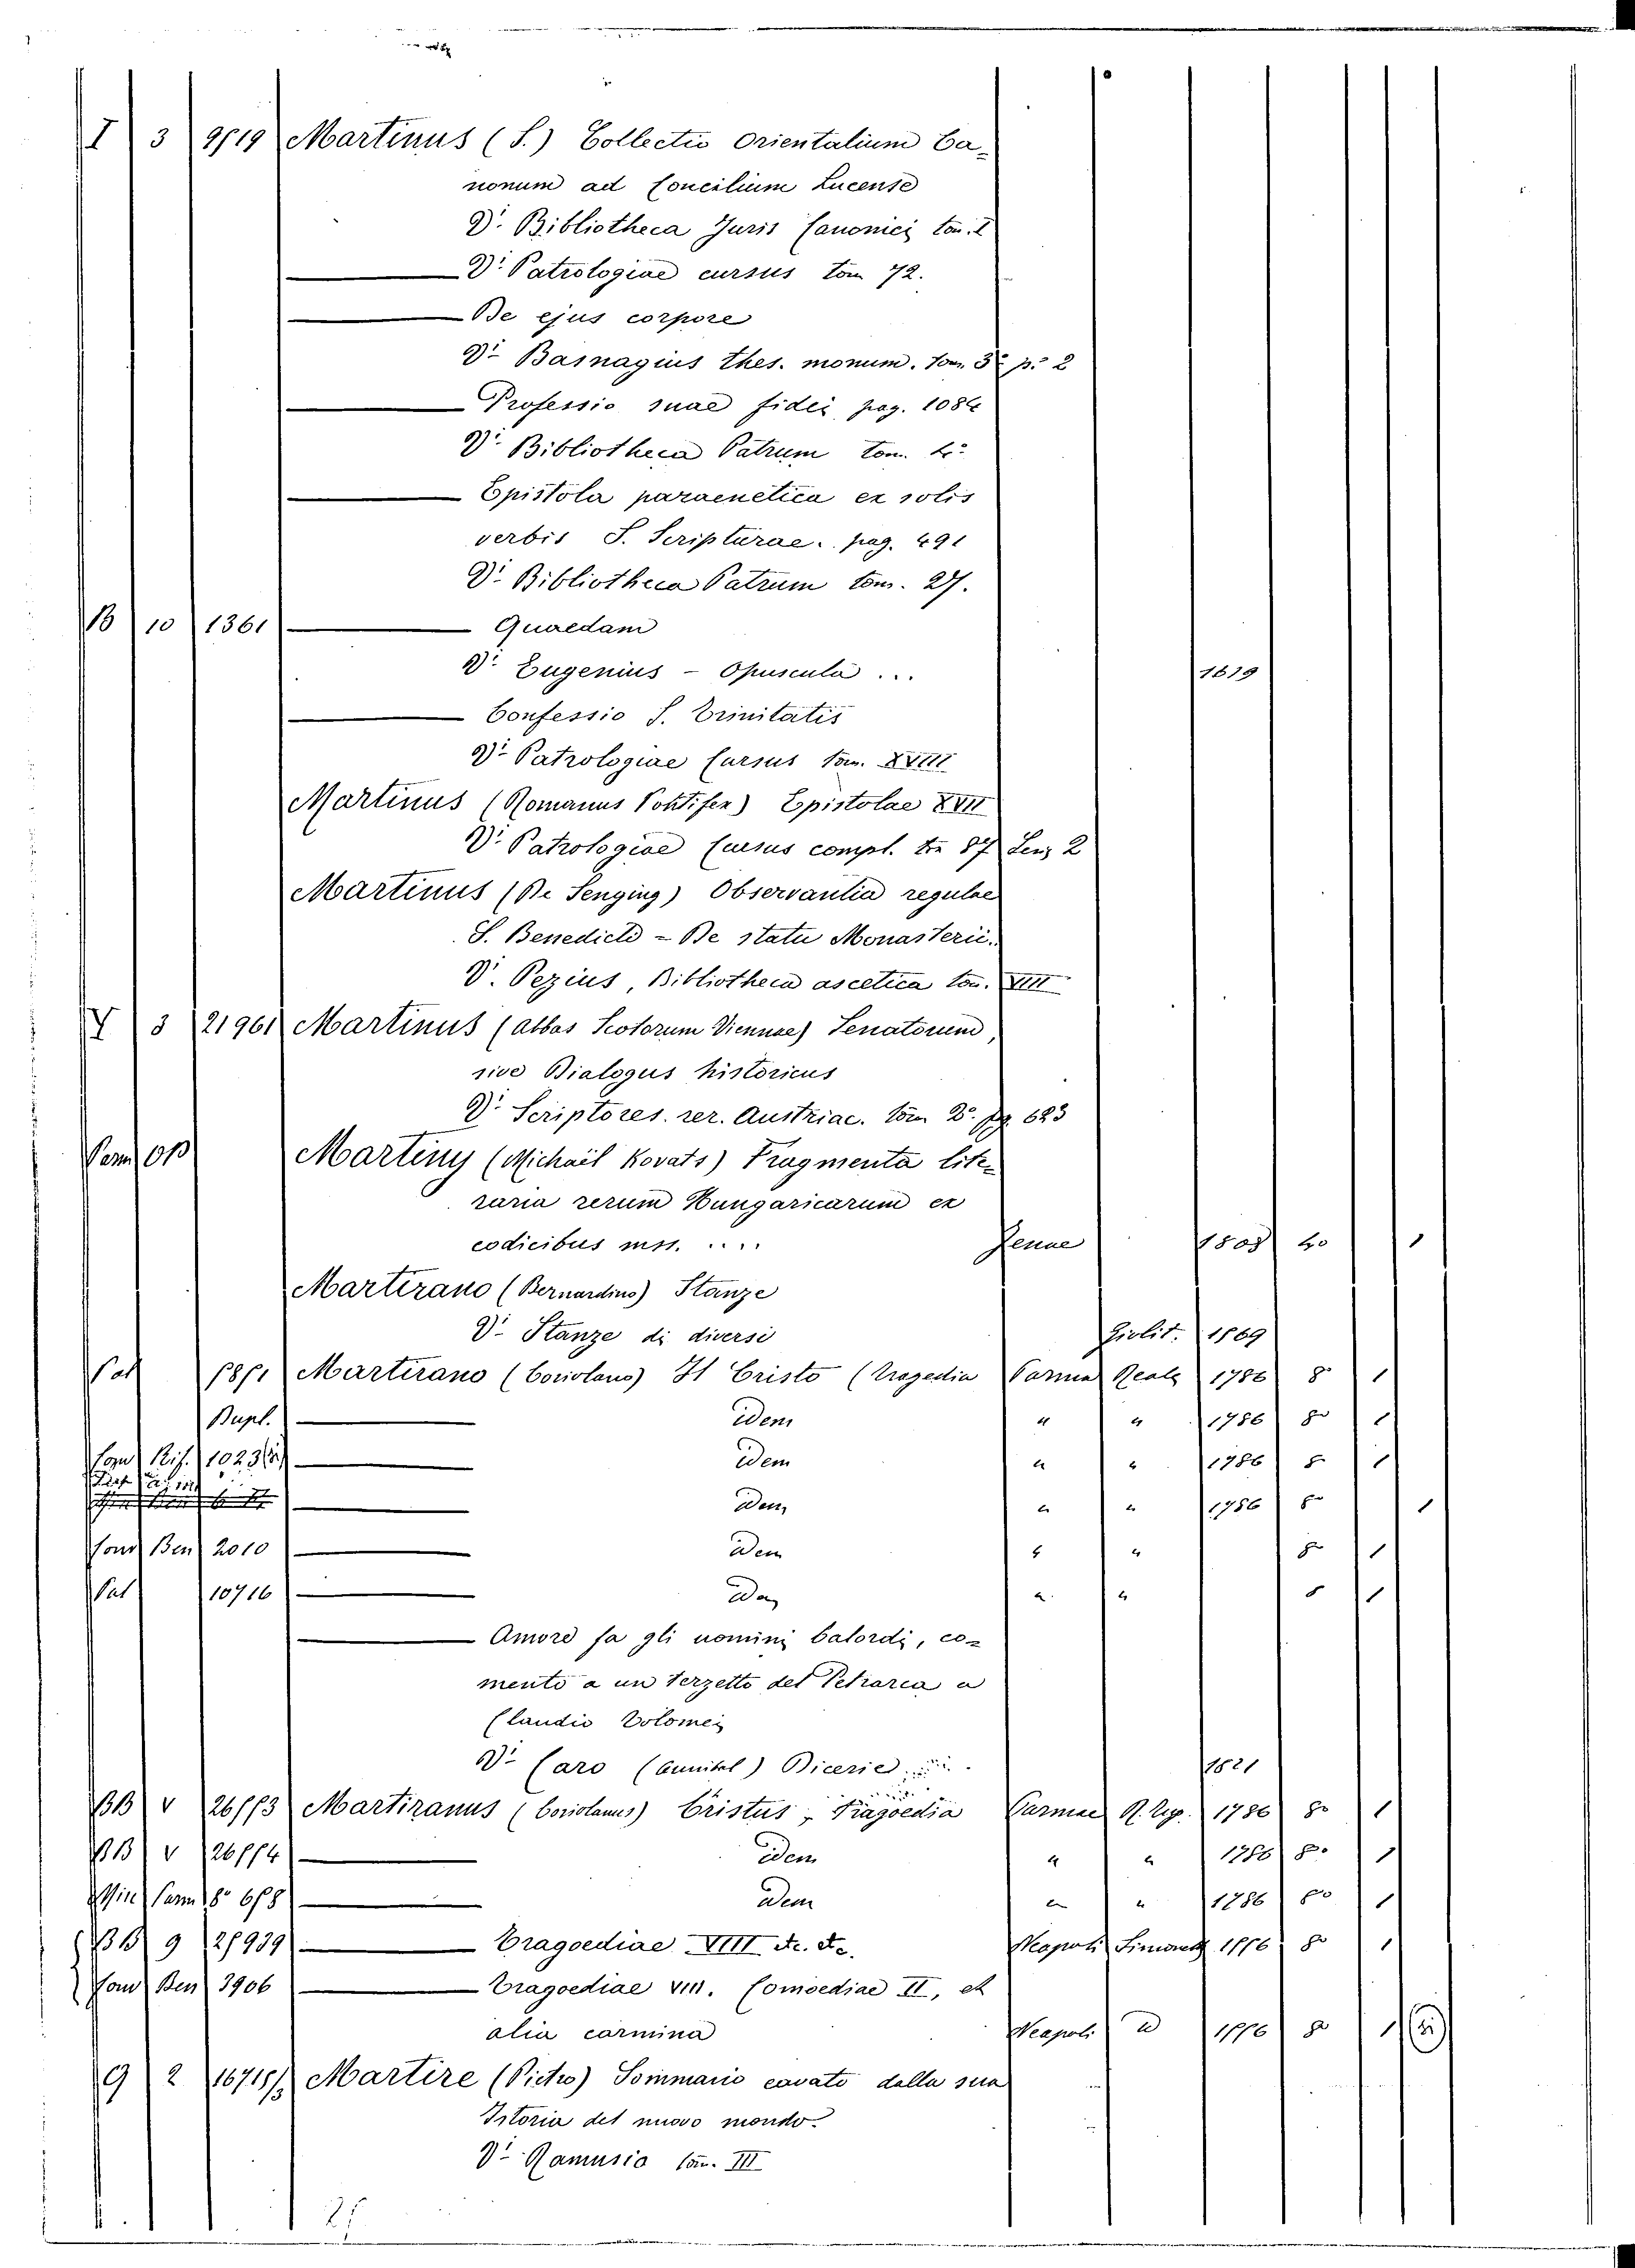 I 3 9519 Martinus (S.) Collectio Orientalium Ca-
nonum ad Concilium Lucense
V. Bibliotheca Juris Canonici tom. I
V. Patrologiae cursus tom 72.
De ejus corpore
V. Basnagius thes. monum. tom. 3 p. 2
Professio suae fidei pag. 1084
V. Bibliotheca Patrum tom.
Epistola paraenetica ex solis
verbis S. Scripturae. pag. 491
V. Bibliotheca Patrum tom. 27.
B 10 1361 Quaedam
V. Eugenius - Opuscula ... 1619
Confessio S. Trinitatis
V. Patrologiae Cursus tom. XVIII
Martinus (Romanus Pontifex) Epistolae XVII
V. Patrologiae Cursus compl. tom 87 Ser. 2
Martinus (De Senging) Observantia regulae
S. Benedicti - De statu Monasterii.
V. Pezius, Bibliotheca ascetica tom. VIII
Y 3 21961 Martinus (abbas Scotorum Viennae) Senatorium,
sive Dialogus historicus
V. Scriptores rer. Austriac. tom 2. pag. 623
Martiny (Michaïl Kovats) Fragmenta lite-
raria rerum Hungaricarum ex
codicibus mss. .... Jenae 1808 4o 1
Martirano (Bernardino) Stanze
V. Stanze di diversi Giolit. 1569
Pal 5851 Martirano (Coriolano) Il Cristo (tragedia Parma Reale 1786 8 1
Dupl. idem " " 1786 8o 1
Rif. 1023 idem " " 1786 8 1
idem " " 1786 8o 1
fond Ben 2010 idem " " 8o 1
Pal 10716 idem " " 8 1
Amore fa gli uomini balordi, co-
mento a un terzetto del Petrarca a
Claudio Tolomei
V. Caro (Annibal) Dicerie ... 1821
BB V 26553 Martiranus (Coriolanus) Cristus, Tragoedia Parmae R. Typ. 1786 8o 1
BB V 26554 idem " " 1786 8o 1
Min Parm 8o 658 idem " " 1786 8o 1
BB 9 25939 Tragoediae VIII &c. &c. Neapoli Simonett 1556 8o 1
fond Ben 3906 Tragoediae VIII. Comoediae II, et
alia carmina Neapoli 1556 8o 1
G 2 16715/3 Martire (Pietro) Sommario cavato dalla sua
Istoria del nuovo mondo.
V. Ramusio tom. III
25